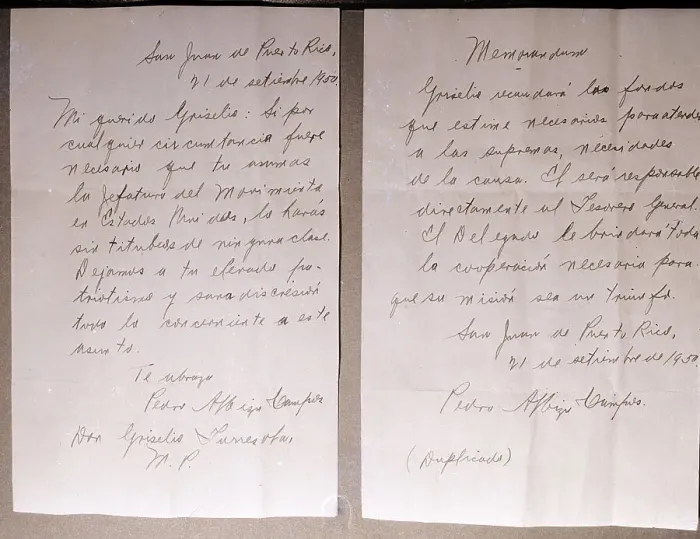 San Juan de Puerto Rico,
21 de setiembre 1950.
Mi querido Griselio: Si por
cualquier circunstancia fuere
necesario que tu asumas
la jefatura del Movimiento
en Estados Unidos, lo harás
sin titubeos de ninguna clase.
Dejamos a tu elevado pa-
triotismo y sana discresión
todo lo concerniente a este
asunto.
Te abraza
Pedro Albizu Campos
Don Griselio Torresola,
M. P.
Memorandum
Griselio recaudará los fondos
que estime necesarios para atender
a las supremas, necesidades
de la causa. El será responsable
directamente al Tesorero General.
El Delegado le brindará toda
la cooperación necesaria para
que su misión sea un triunfo.
San Juan de Puerto Rico,
21 de setiembre de 1950
Pedro Albizu Campos.
(Duplicado)